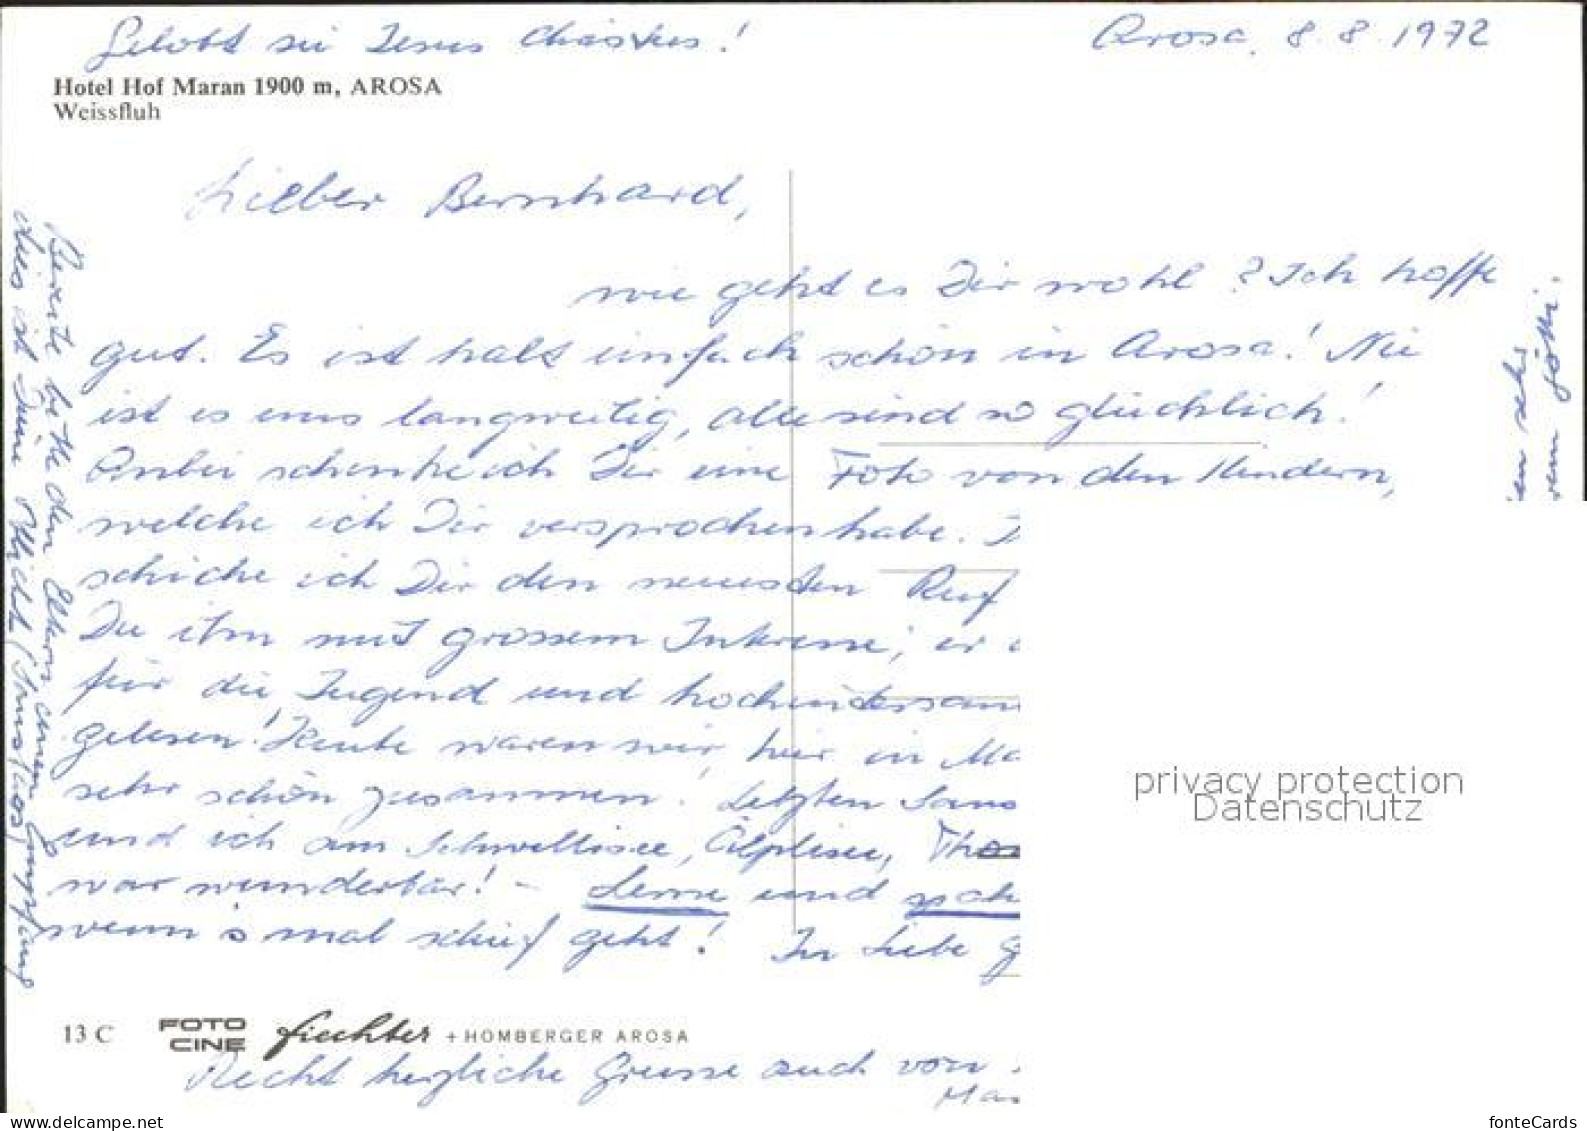 Gelobt sei Jesus Christus!
Arosa, 8. 8. 1972
Hotel Hof Maran 1900 m, AROSA
Weissfluh
Lieber Bernhard,
wie geht es Dir wohl? Ich hoffe
gut. Es ist halt einfach schön in Arosa! Nie
ist es uns langweilig, alle sind so glücklich!
Anbei schenke ich Dir eine Foto von den Kindern,
welche ich Dir versprochen habe.
schicke ich Dir den neuesten Ruf
Du ihn mit grossem Interesse, er
für die Jugend und hochinteressan
gelesen! Heute waren wir hier in Ma
sehr schön zusammen. Letzten Sams
und ich am Schwellisee, Älplisee,
war wunderbar! - Lerne und
wenn's mal schief geht! In Liebe G
Bereite bitte den Eltern einen Empfang
dies ist Deine Pflicht
13 C FOTO CINE fiechter + HOMBERGER AROSA
Recht herzliche Grüsse auch von
Mar
privacy protection
Datenschutz
delcampe.net
fonteCards